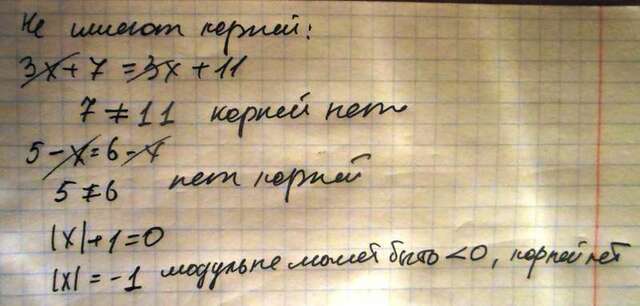 Не имеют корней:
3x + 7 = 3x + 11
7 ≠ 11 корней нет
5 - x = 6 - x
5 ≠ 6 нет корней
|x| + 1 = 0
|x| = -1 модуль не может быть <0, корней нет